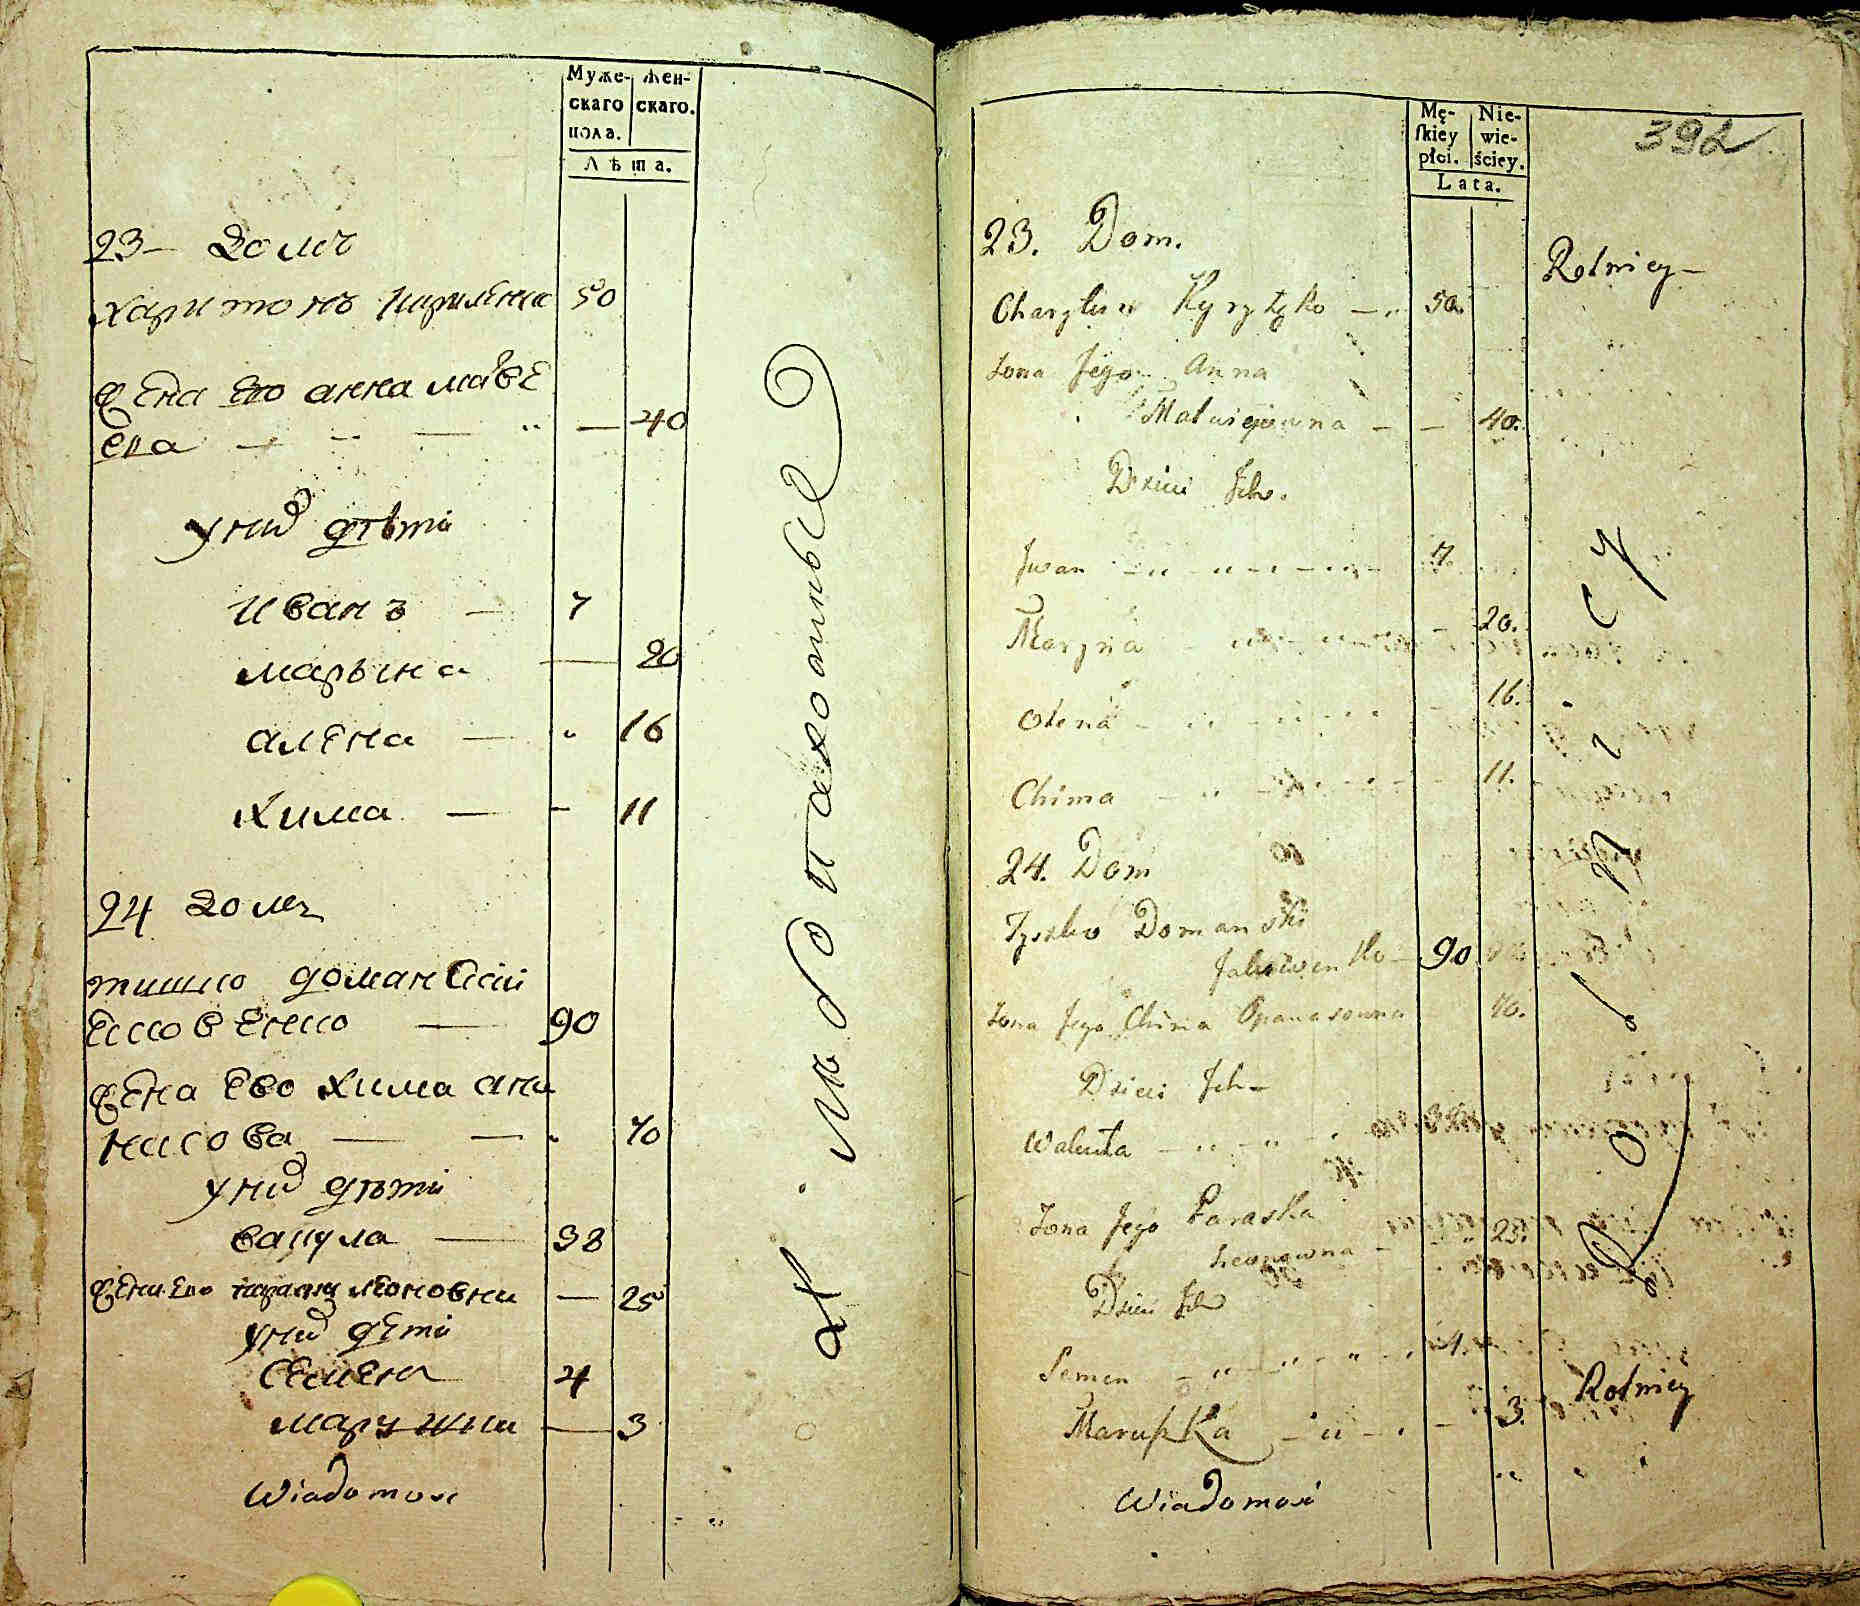 Муже-
скаго
пола.
Жен-
скаго.
Лѣта.
23 - Домъ
Харитонъ Кириленко 50
Жена Ево Анна Матве
ева — — — 40
У них дѣти
Иванъ — 7
Марына — 20
Алена — 16
Хима — 11
24 Домъ
Тишко Доманский
90
Жена Ево Хима
— 70
У них дѣти
Вакула — 38
Жена Ево Параска Леоновна — 25
У них дети
Семенъ 4
Марушка — 3
Wiadomość
Хлебопахотные
Mę-
skiey
płci.
Nie-
wie-
ściey.
Lata.
392
23. Dom.
Rolnicy -
Charyton 50.
Żona Jego Anna
Matwiejowna - - 40.
Dzieci Ich.
Iwan 7.
Maryna 20.
Olena 16.
Chima 11.
24. Dom
Tyszko Domanski
90
Żona Jego Chima Opanasowna 70.
Dzieci Ich -
Wakuła 38
Żona Jego Paraska
Leonowna - 25.
Dzieci Ich
Semen 4.
Maruszka 3.
Rolnicy
Wiadomość
Rolnicy